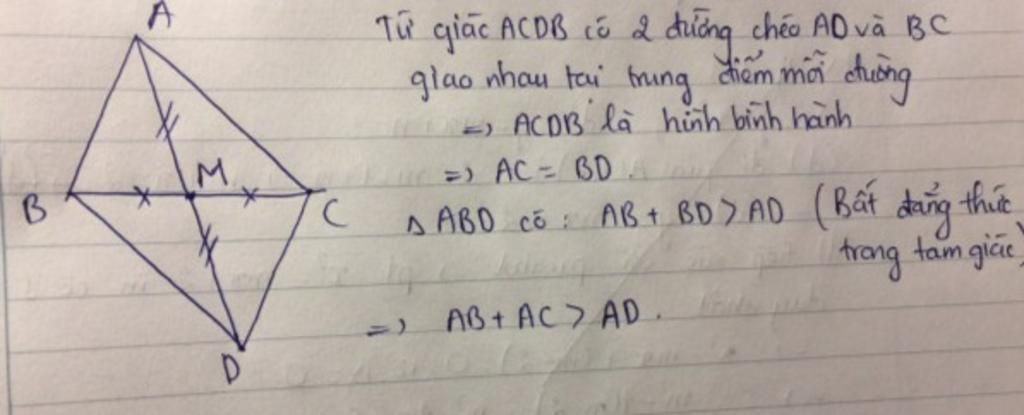 A
B
M
C
D
Tứ giác ACDB có 2 đường chéo AD và BC
giao nhau tại trung điểm mỗi đường
=> ACDB là hình bình hành
=> AC = BD.
Δ ABD có: AB + BD > AD (Bất đẳng thức
trong tam giác)
=> AB + AC > AD.